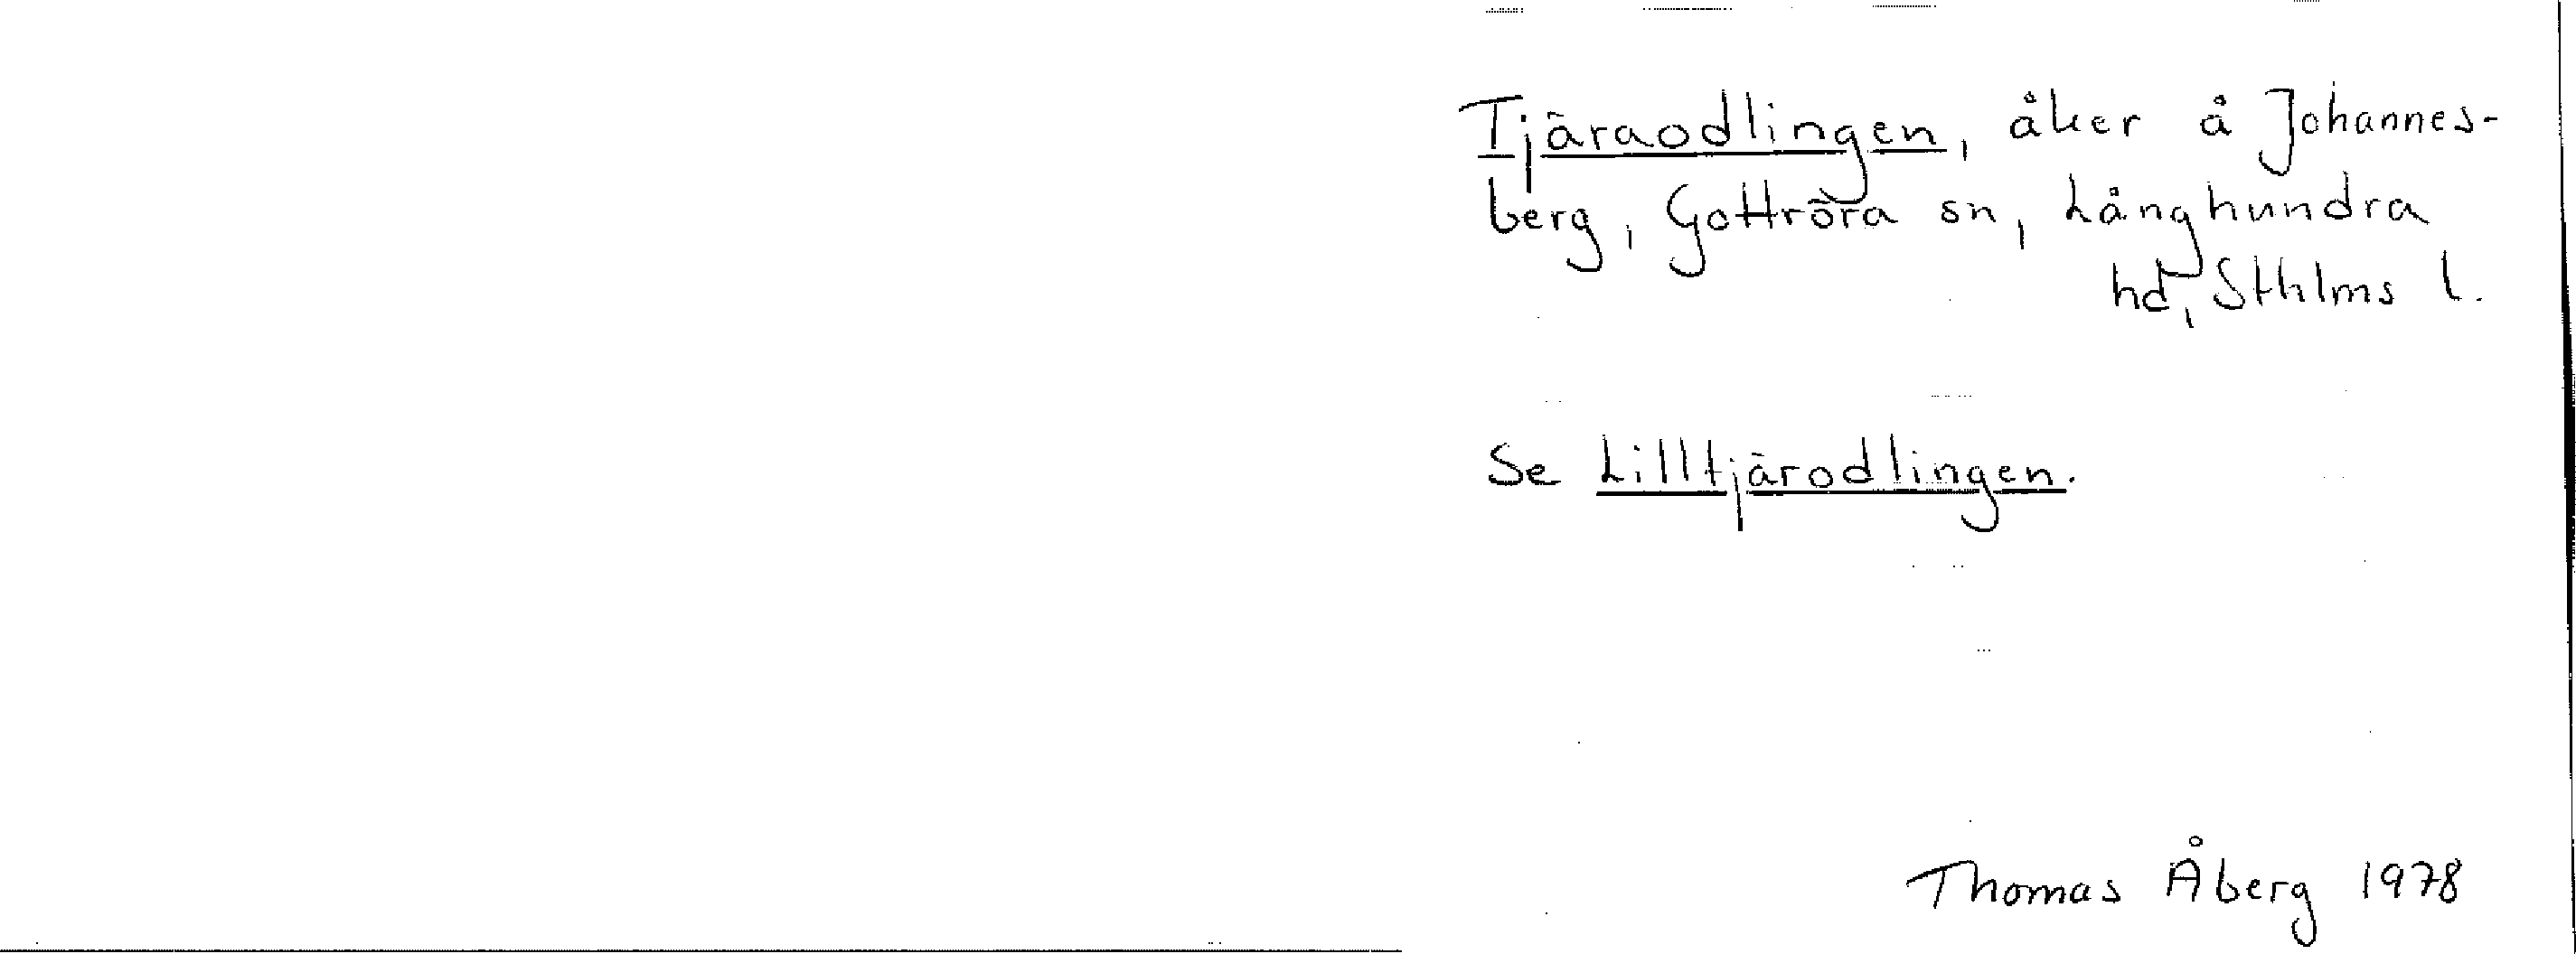 Tjäraodlingen, åker å Johannes-
berg, Gottröra sn, Långhundra
hd, Sthlms l.
Se Lilltjärodlingen.
Thomas Åberg 1978